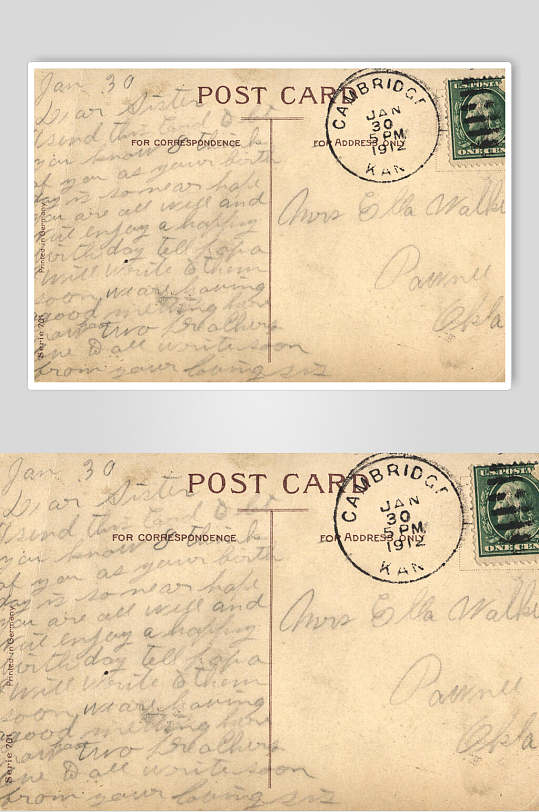 Jan 30
Dear Sister
POST CARD
I send this Card to let
FOR CORRESPONDENCE
FOR ADDRESS ONLY
you know I think
of you as your birth
day is so near hope
you are all well and
will enjoy a happy
birthday tell pa
I will write to them
soon we are having
a good meeting here
two Preachers
all write soon
from your loving sis
Printed in Germany
Serie 701
CAMBRIDGE
JAN
30
5 PM
1912
KAN
U.S. POSTAGE
ONE CENT
Mrs Ella Walke
Pawnee
Okla
Jan 30
Dear Sister
POST CARD
I send this Card to let
FOR CORRESPONDENCE
FOR ADDRESS ONLY
you know I think
of you as your birth
day is so near hope
you are all well and
will enjoy a happy
birthday tell pa
I will write to them
soon we are having
a good meeting here
two Preachers
all write soon
from your loving sis
Printed in Germany
Serie 701
CAMBRIDGE
JAN
30
5 PM
1912
KAN
U.S. POSTA
ONE CEN
Mrs Ella Walke
Pawnee
Okla